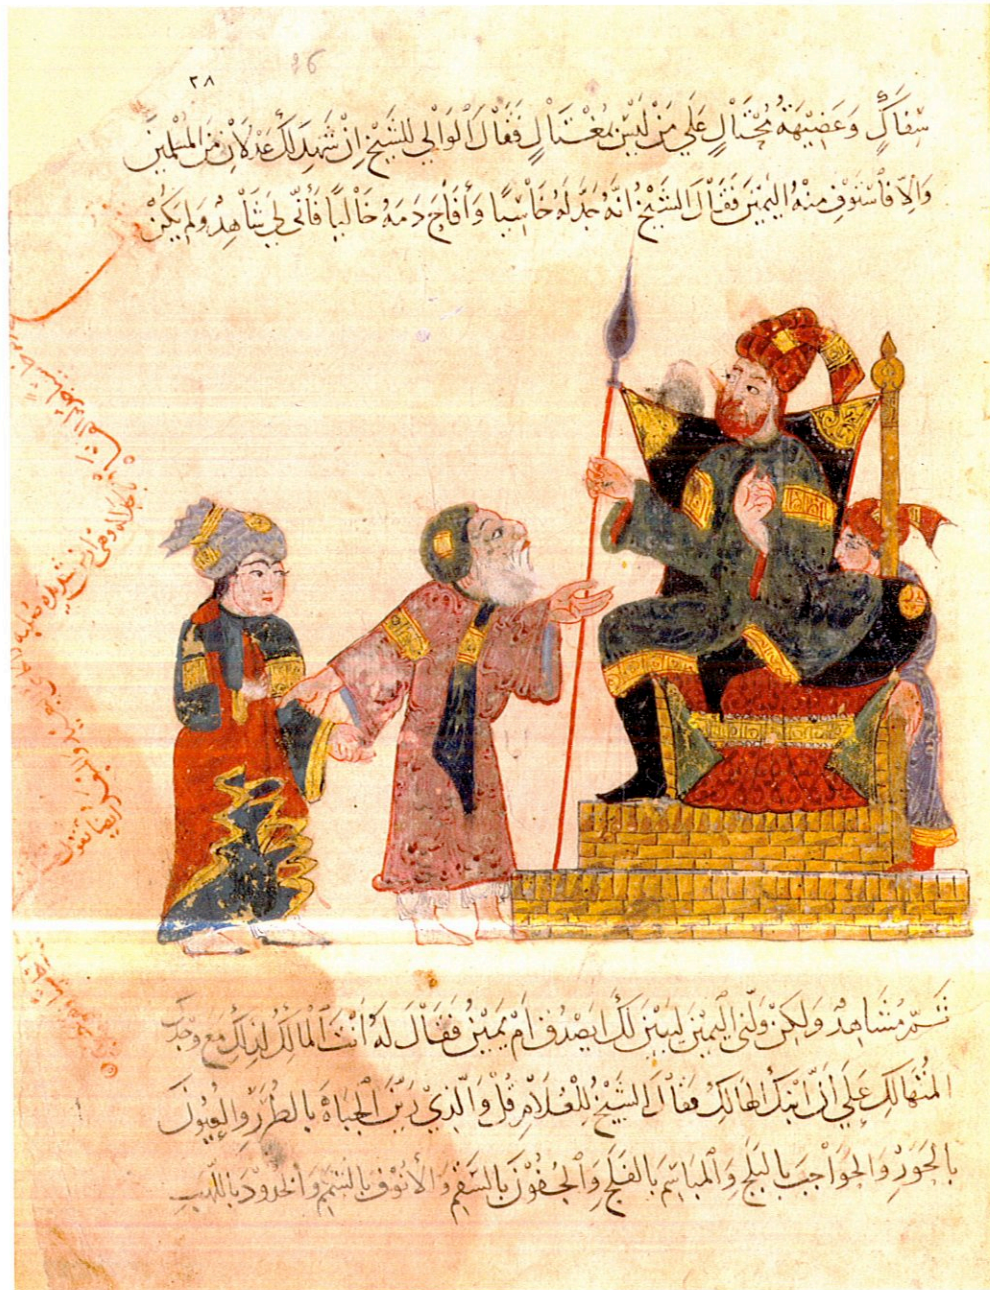 ٢٨
سفاك وعضيهة محتال علي من ليس بمغتال فقال الوالي للشيخ ان شهد لك عدلان من المسلمين
والا فاستوف منه اليمين فقال الشيخ انه جدله خاسيا وأفاح دمه خاليا فأنى لي شاهد ولم يكن
ثم مشاهد ولكن ولني اليمين ليبين لك ايصدق ام يمين فقال له أنت المالك لذلك مع وجدك
المتهالك علي ابنك الهالك فقال الشيخ للغلام قل والذي زين الجباه بالطرر والعيون
بالحور والحواجب بالبلج والمباسم بالفلج والجفون بالسقم والأنوف بالشمم والخدود باللهب